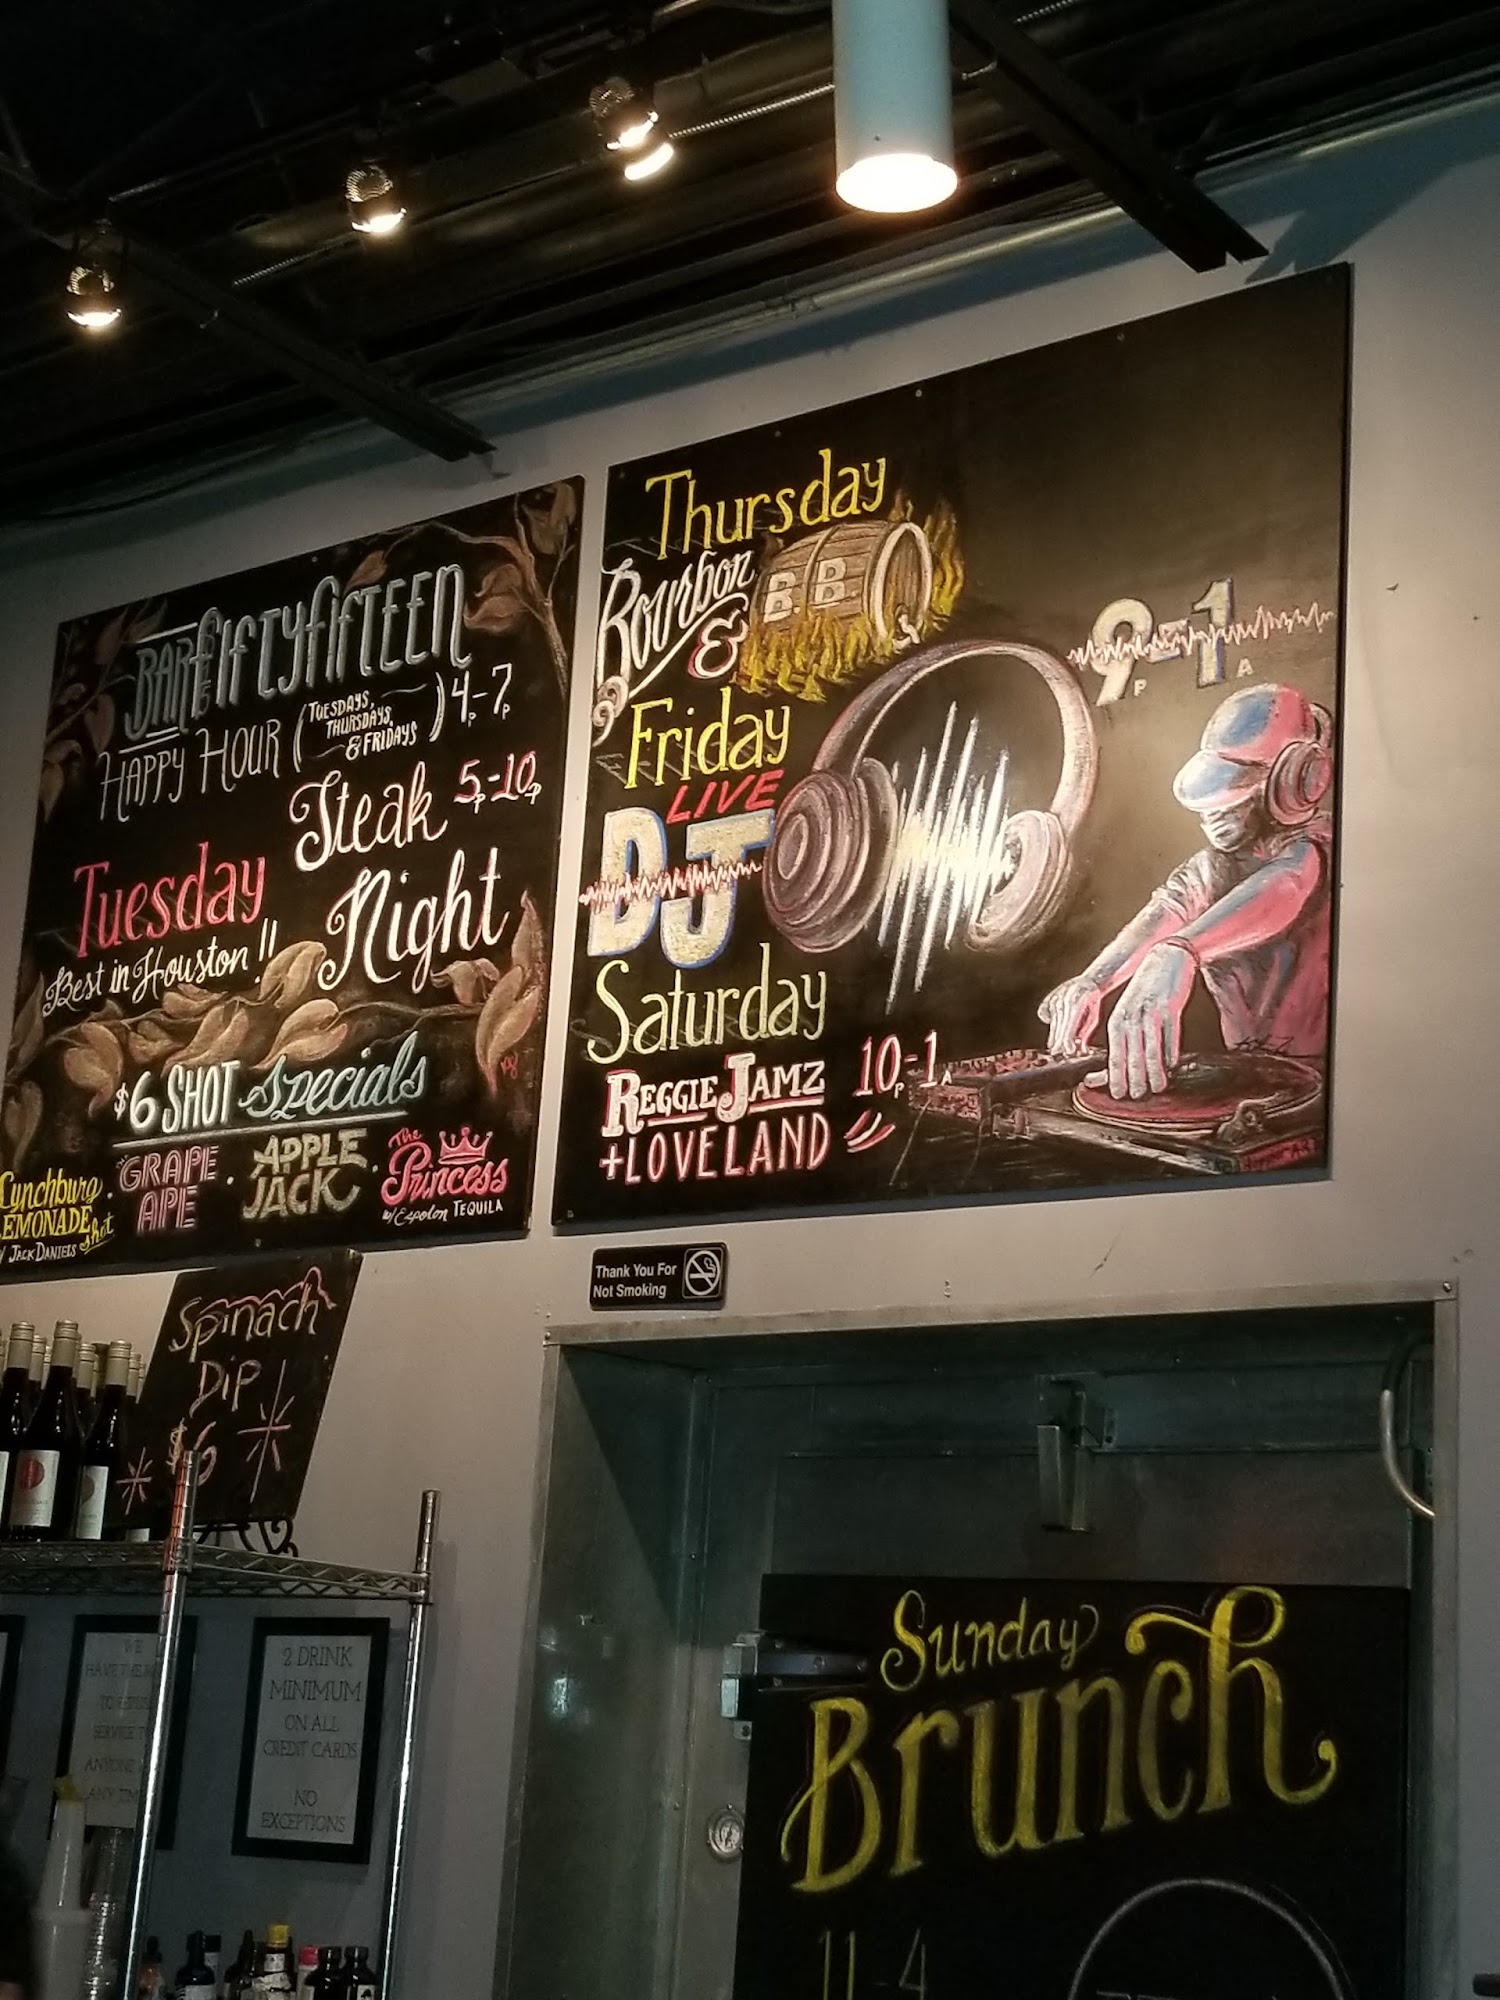 BAR FIFTYFIFTEEN
HAPPY HOUR (TUESDAYS, THURSDAYS, & FRIDAYS) 4P-7P
Tuesday Steak Night 5P-10P
Best in Houston!!
$6 SHOT Specials
Lynchburg LEMONADE shot W/ JACK DANIELS
GRAPE APE
APPLE JACK
The Princess w/ Espolon TEQUILA
Thursday
Bourbon & B.B.
Friday
LIVE
DJ
9P-1A
Saturday
REGGIE JAMZ 10P-1A
+LOVELAND
Thank You For
Not Smoking
Spinach
Dip
$6
WE
SERVICE
ANYONE
ANY TIME
2 DRINK
MINIMUM
ON ALL
CREDIT CARDS
NO
EXCEPTIONS
Sunday
Brunch
11-4